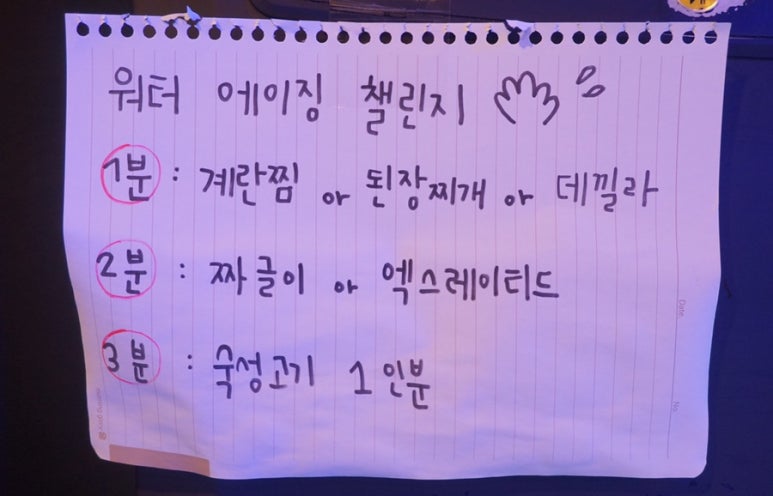 워터 에이징 챌린지
1분 : 계란찜 or 된장찌개 or 데낄라
2분 : 짜글이 or 엑스레이티드
3분 : 숙성고기 1인분
Date.
No.